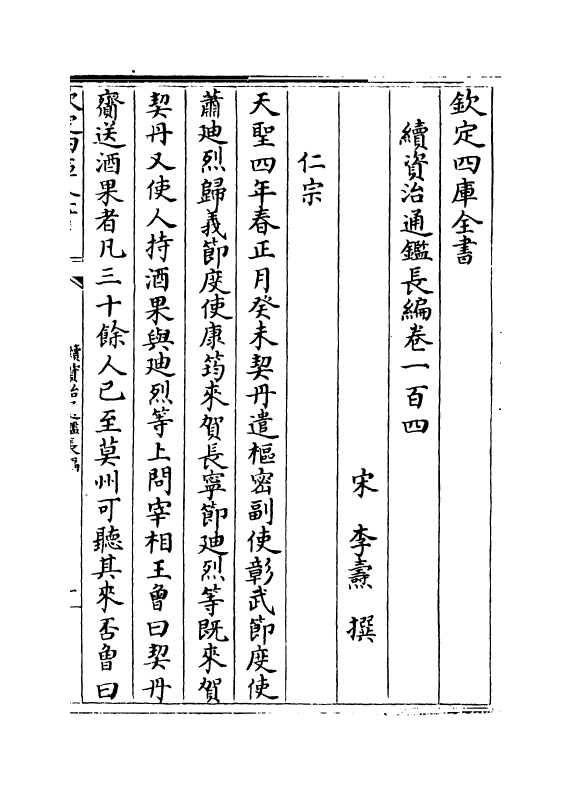 欽定四庫全書
續資治通鑑長編卷一百四
宋　李燾　撰
仁宗
天聖四年春正月癸未契丹遣樞密副使彰武節度使
蕭廸烈歸義節度使康筠來賀長寧節廸烈等既來賀
契丹又使人持酒果與廸烈等上問宰相王曾曰契丹
齎送酒果者凡三十餘人已至莫州可聽其來否曾曰
續資治通鑑長編